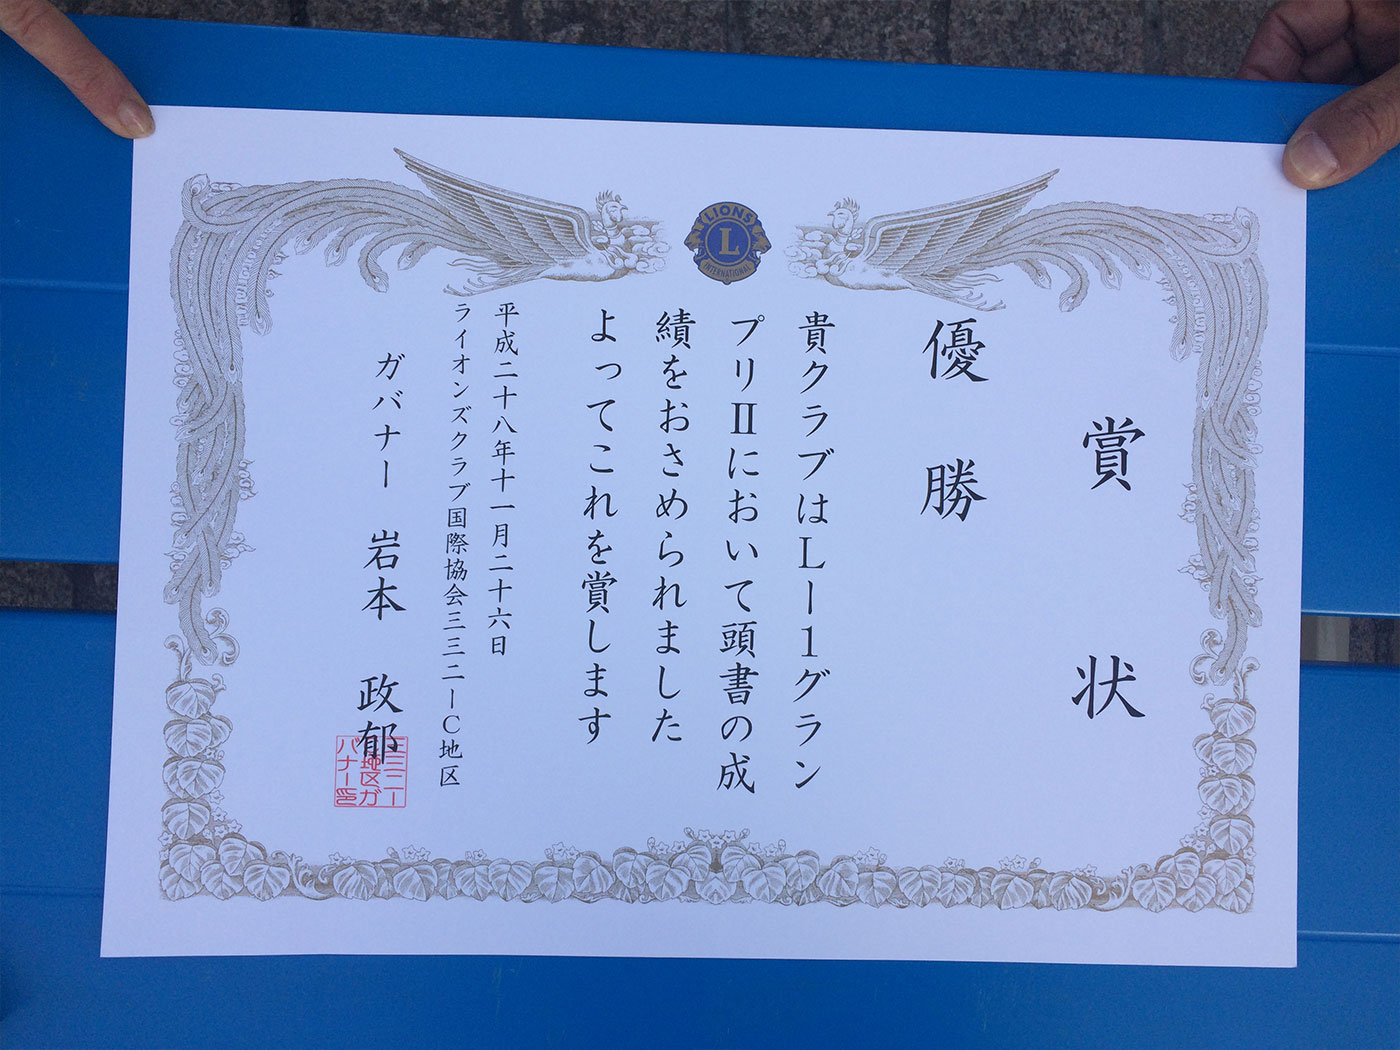 賞状
優勝
貴クラブはLー1グラン
プリⅡにおいて頭書の成
績をおさめられました
よってこれを賞します
平成二十八年十一月二十六日
ライオンズクラブ国際協会三三二ーC地区
ガバナー 岩本 政郁
三三二ー
C地区ガ
バナー印
LIONS
L
INTERNATIONAL